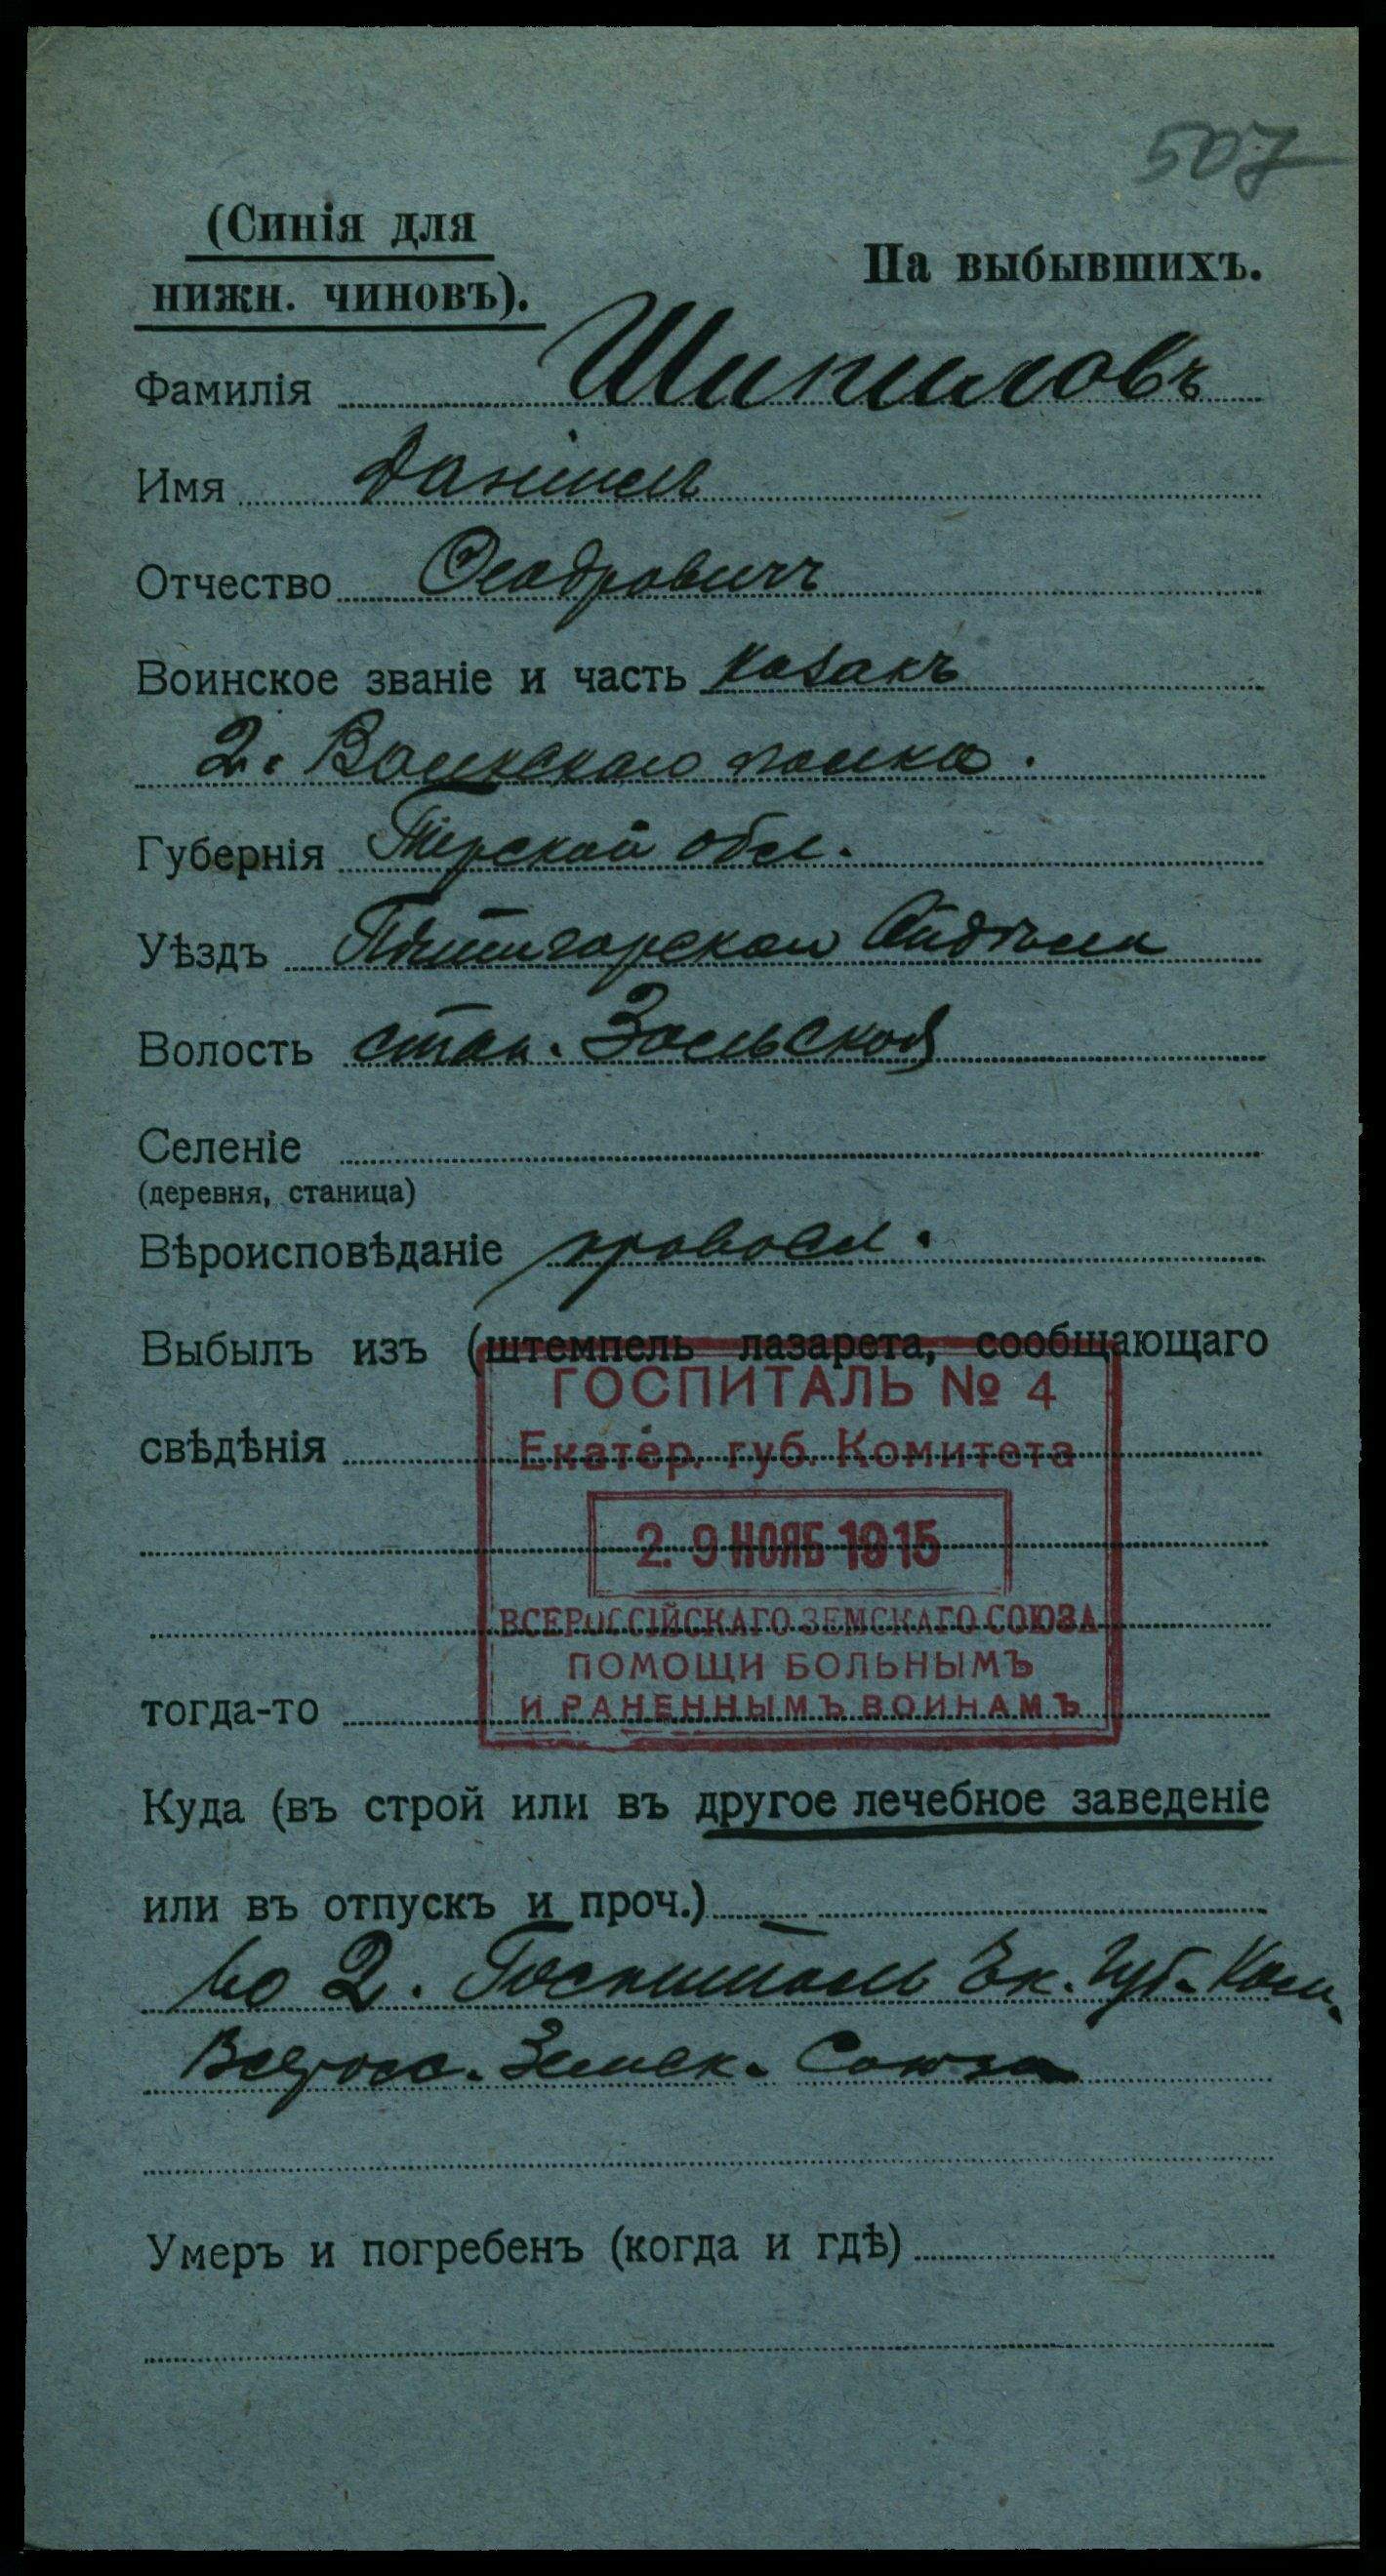 507
(Синія для
нижн. чиновъ).
На выбывшихъ.
Фамилія Шипиловъ
Имя Даніилъ
Отчество Феодровичъ
Воинское званіе и часть Казакъ
2. полка.
Губернія Терской обл.
Уѣздъ Пятигорскаго
Волость стан. Зольской
Селеніе
(деревня, станица)
Вѣроисповѣданіе правосл.
Выбылъ изъ (штемпель лазарета, сообщающаго
ГОСПИТАЛЬ № 4
свѣдѣнія
Екатер. губ. Комитета
2. 9 НОЯБ 1915
ВСЕРОССІЙСКАГО ЗЕМСКАГО СОЮЗА
ПОМОЩИ БОЛЬНЫМЪ
тогда-то
И РАНЕННЫМЪ ВОИНАМЪ
Куда (въ строй или въ другое лечебное заведеніе
или въ отпускъ и проч.)
во 2. Госпиталь Ек. Губ. Ком.
Всеросс. Земск. Союза
Умеръ и погребенъ (когда и гдѣ)